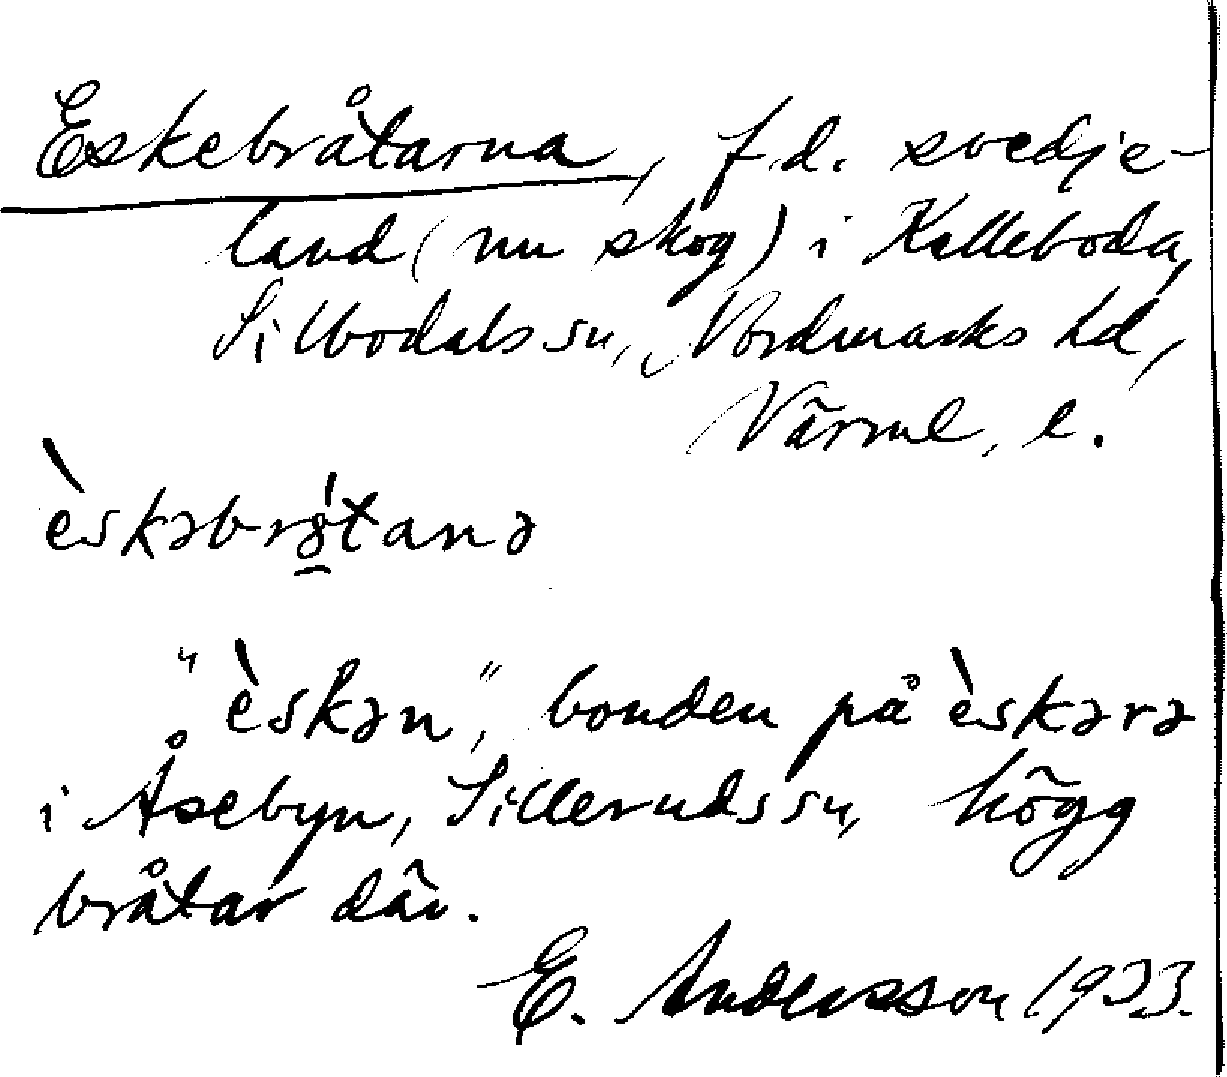 Eskebråtarna, f.d. svedje-
land (nu skog) i Kalleboda,
Silbodals sn, Nordmarks hd,
Värml. l.
èskəbrǻ̱tanə
"èskən", bonden på èskərə
i Åsebyn, Sillerudssn, högg
bråtar där.
E. Andersson 1933.